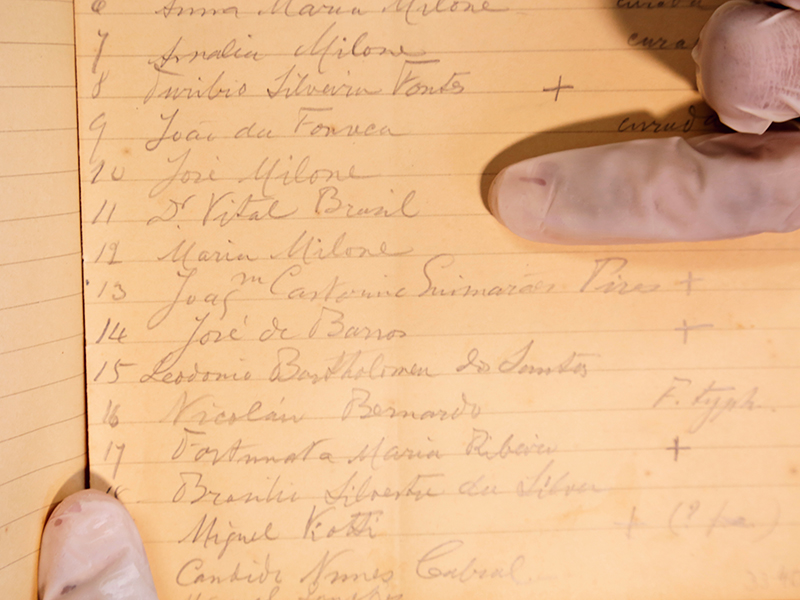 6 Anna Maria Milone curada
7 Amalia Milone
8 Turibio Silveira Fontes +
9 João da Fonseca curada
10 José Milone
11 Dr Vital Brasil
12 Maria Milone
13 Joaqm Guimarães Pires +
14 José de Barros +
15 Leodonio Bartholomeu dos Santos
16 Nicoláu Bernardo F. typh.
17 Fortunata Maria Ribeiro +
Brasilio Silvestre da Silva
Miguel + (?
Candido Nunes Cabral